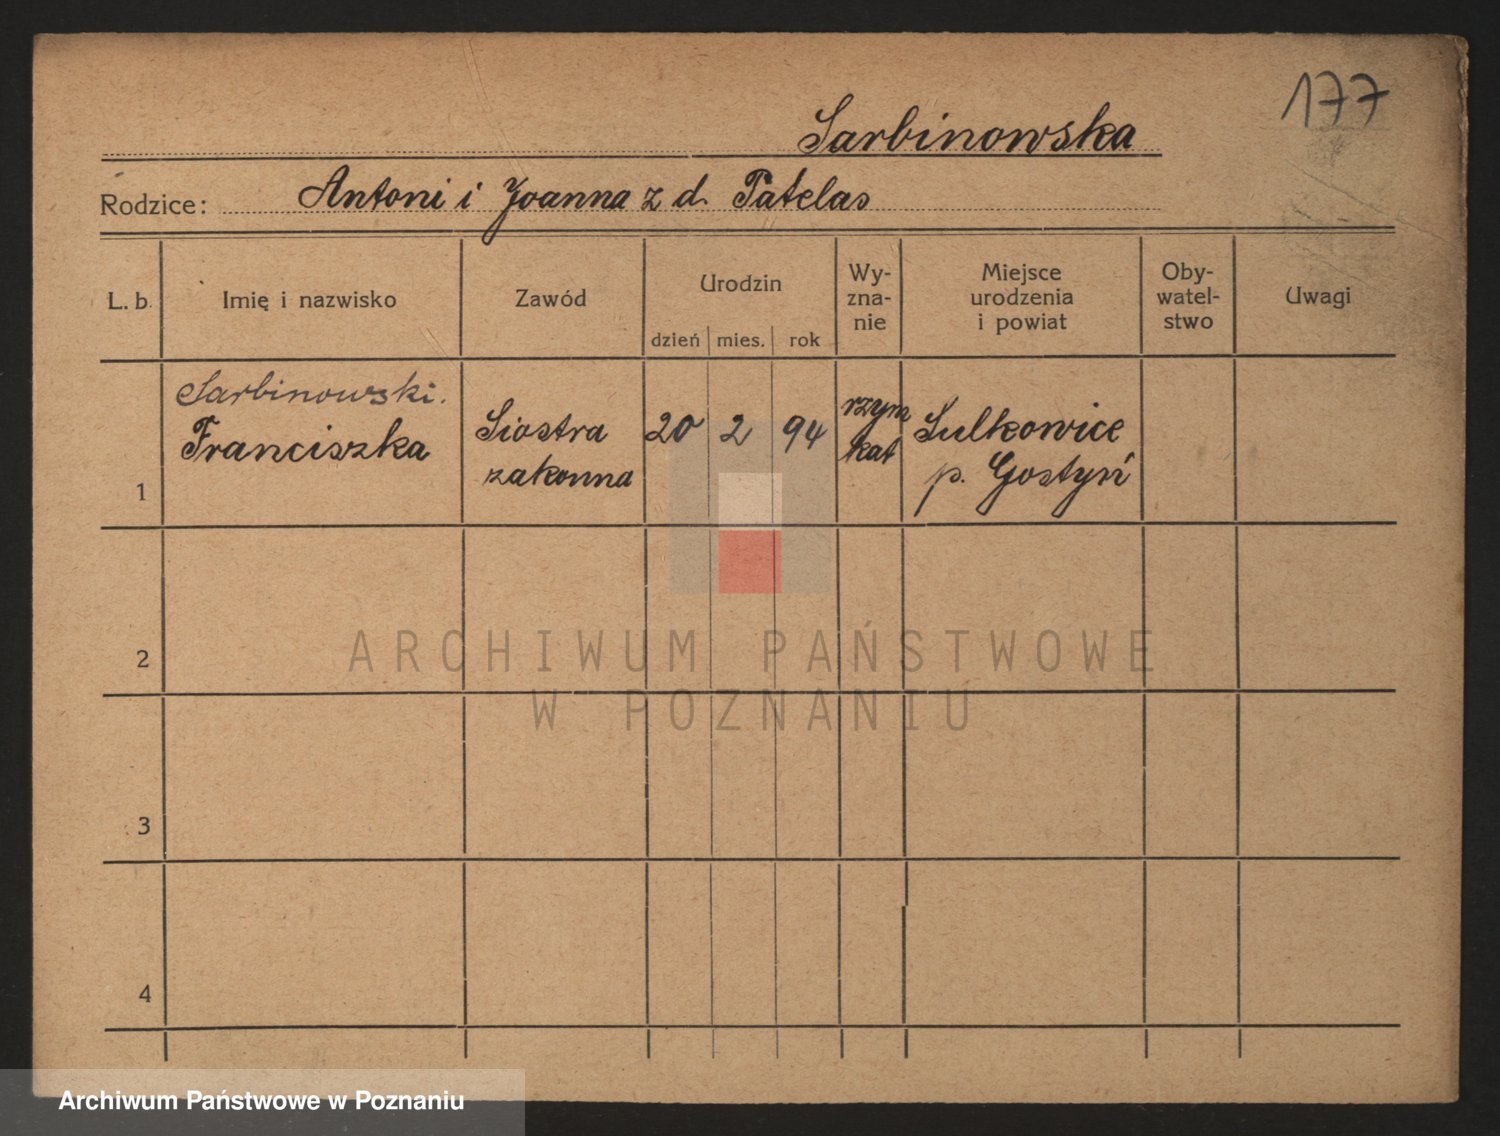 177
Sarbinowska
Rodzice: Antoni i Joanna z d. Patelas
L. b.
Imię i nazwisko
Zawód
Urodzin
dzień mies. rok
Wy-
zna-
nie
Miejsce
urodzenia
i powiat
Oby-
watel-
stwo
Uwagi
1
Sarbinowski.
Franciszka
Siostra
zakonna
20 2 94
rzym
kat
Sulkowice
p. Gostyń
2
3
4
ARCHIWUM PAŃSTWOWE
W POZNANIU
Archiwum Państwowe w Poznaniu